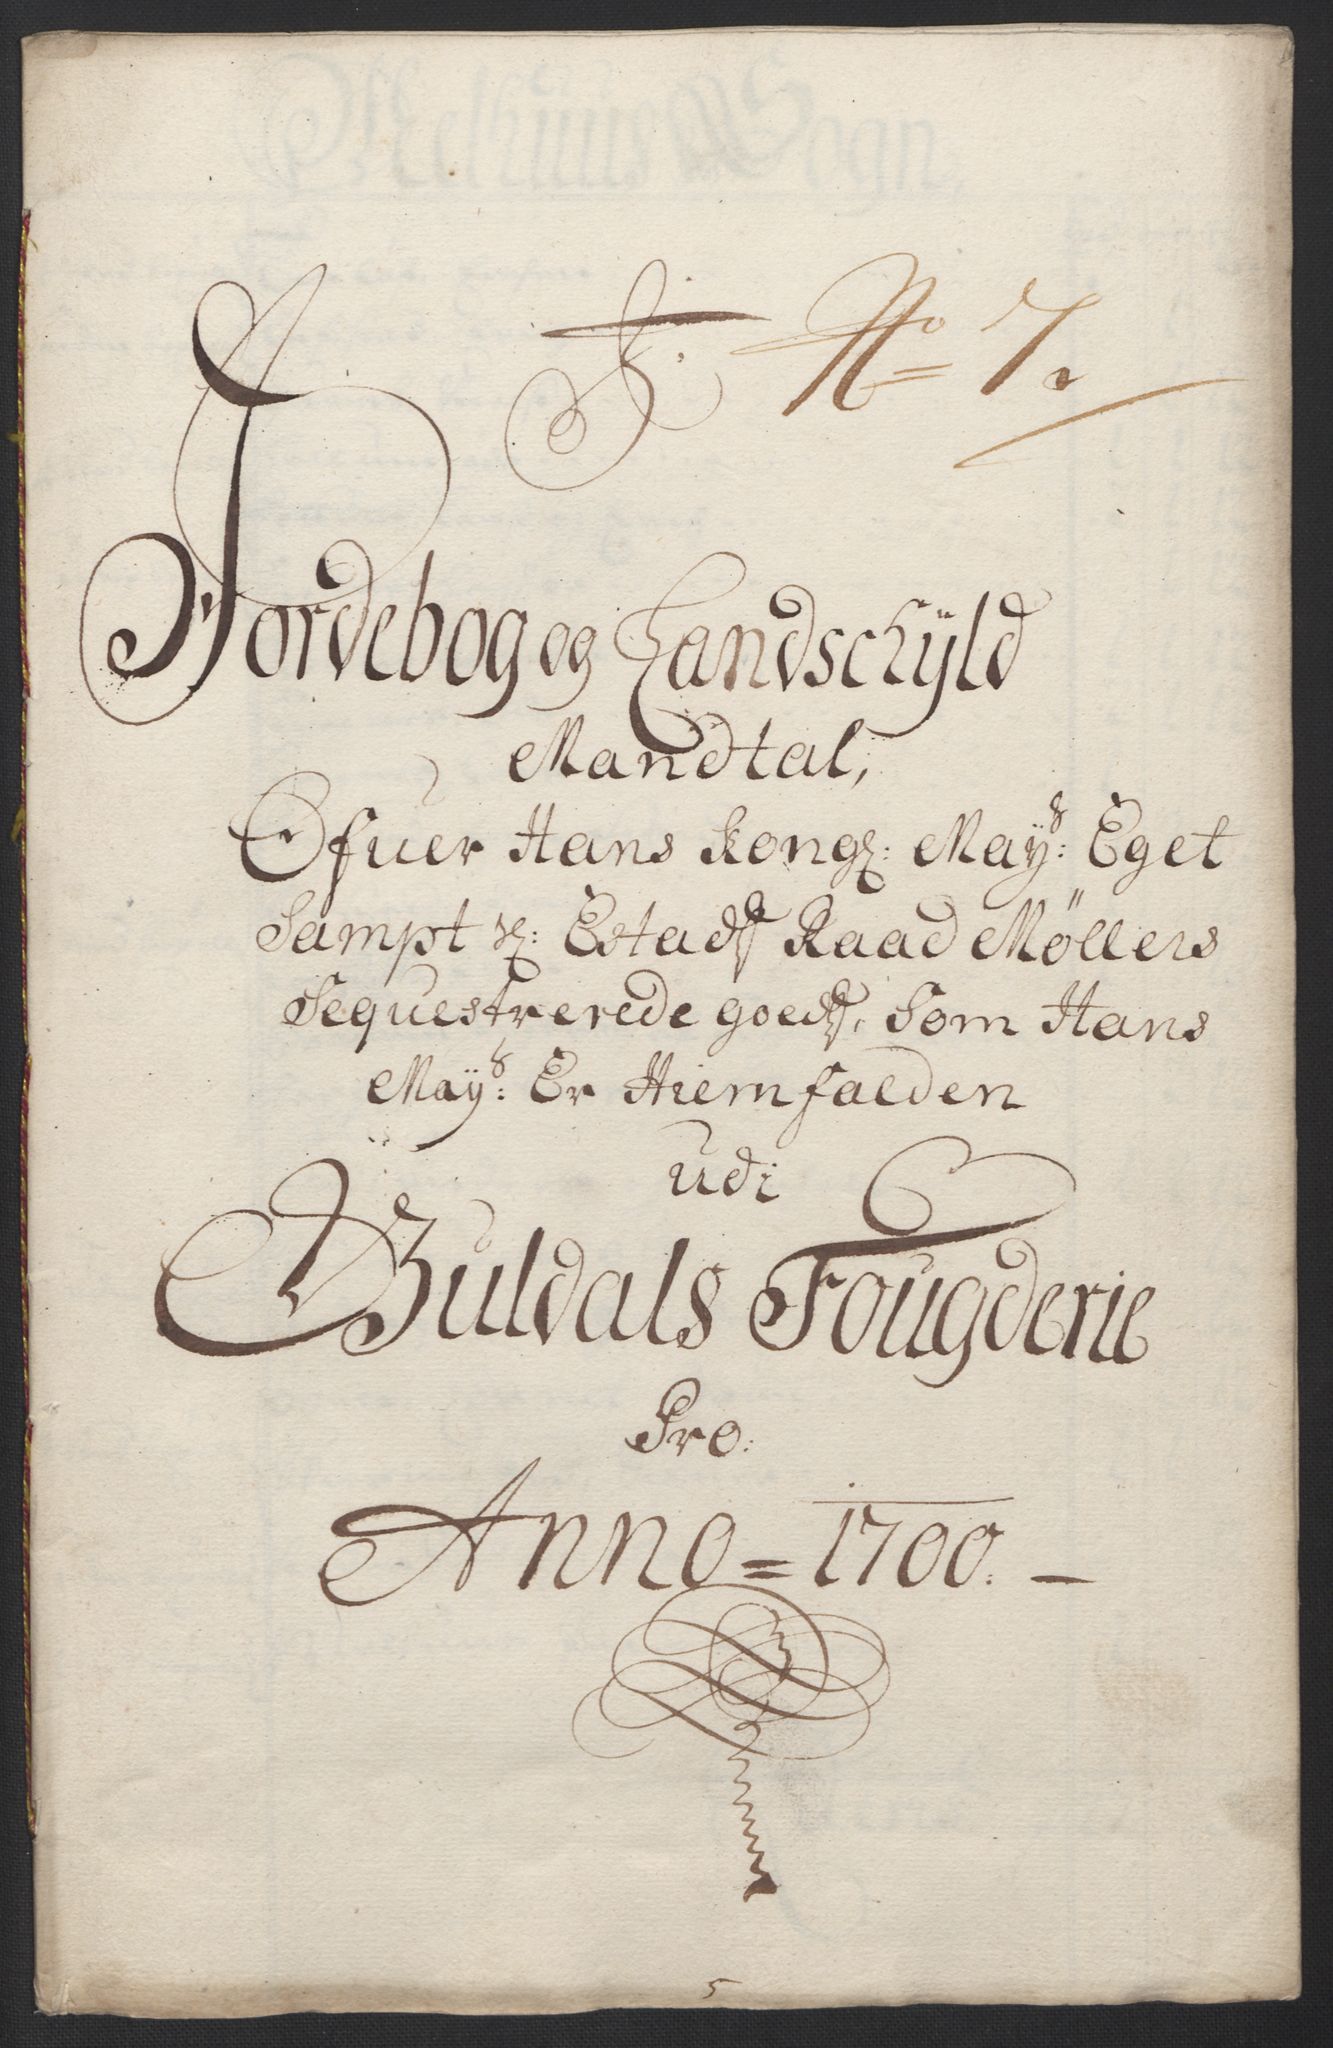 F. No 7.
Jordebog og Landschÿld
Mandtal,
Ofuer Hans Kongl: Mayß: Eget
Sampt Hr: Estads Raad Möllers
Sequestrerede goeds, Som Hans
Mayß: Er Hiemfalden
udi
Guldals Fougderie
Pro:
Anno = 1700. –
5